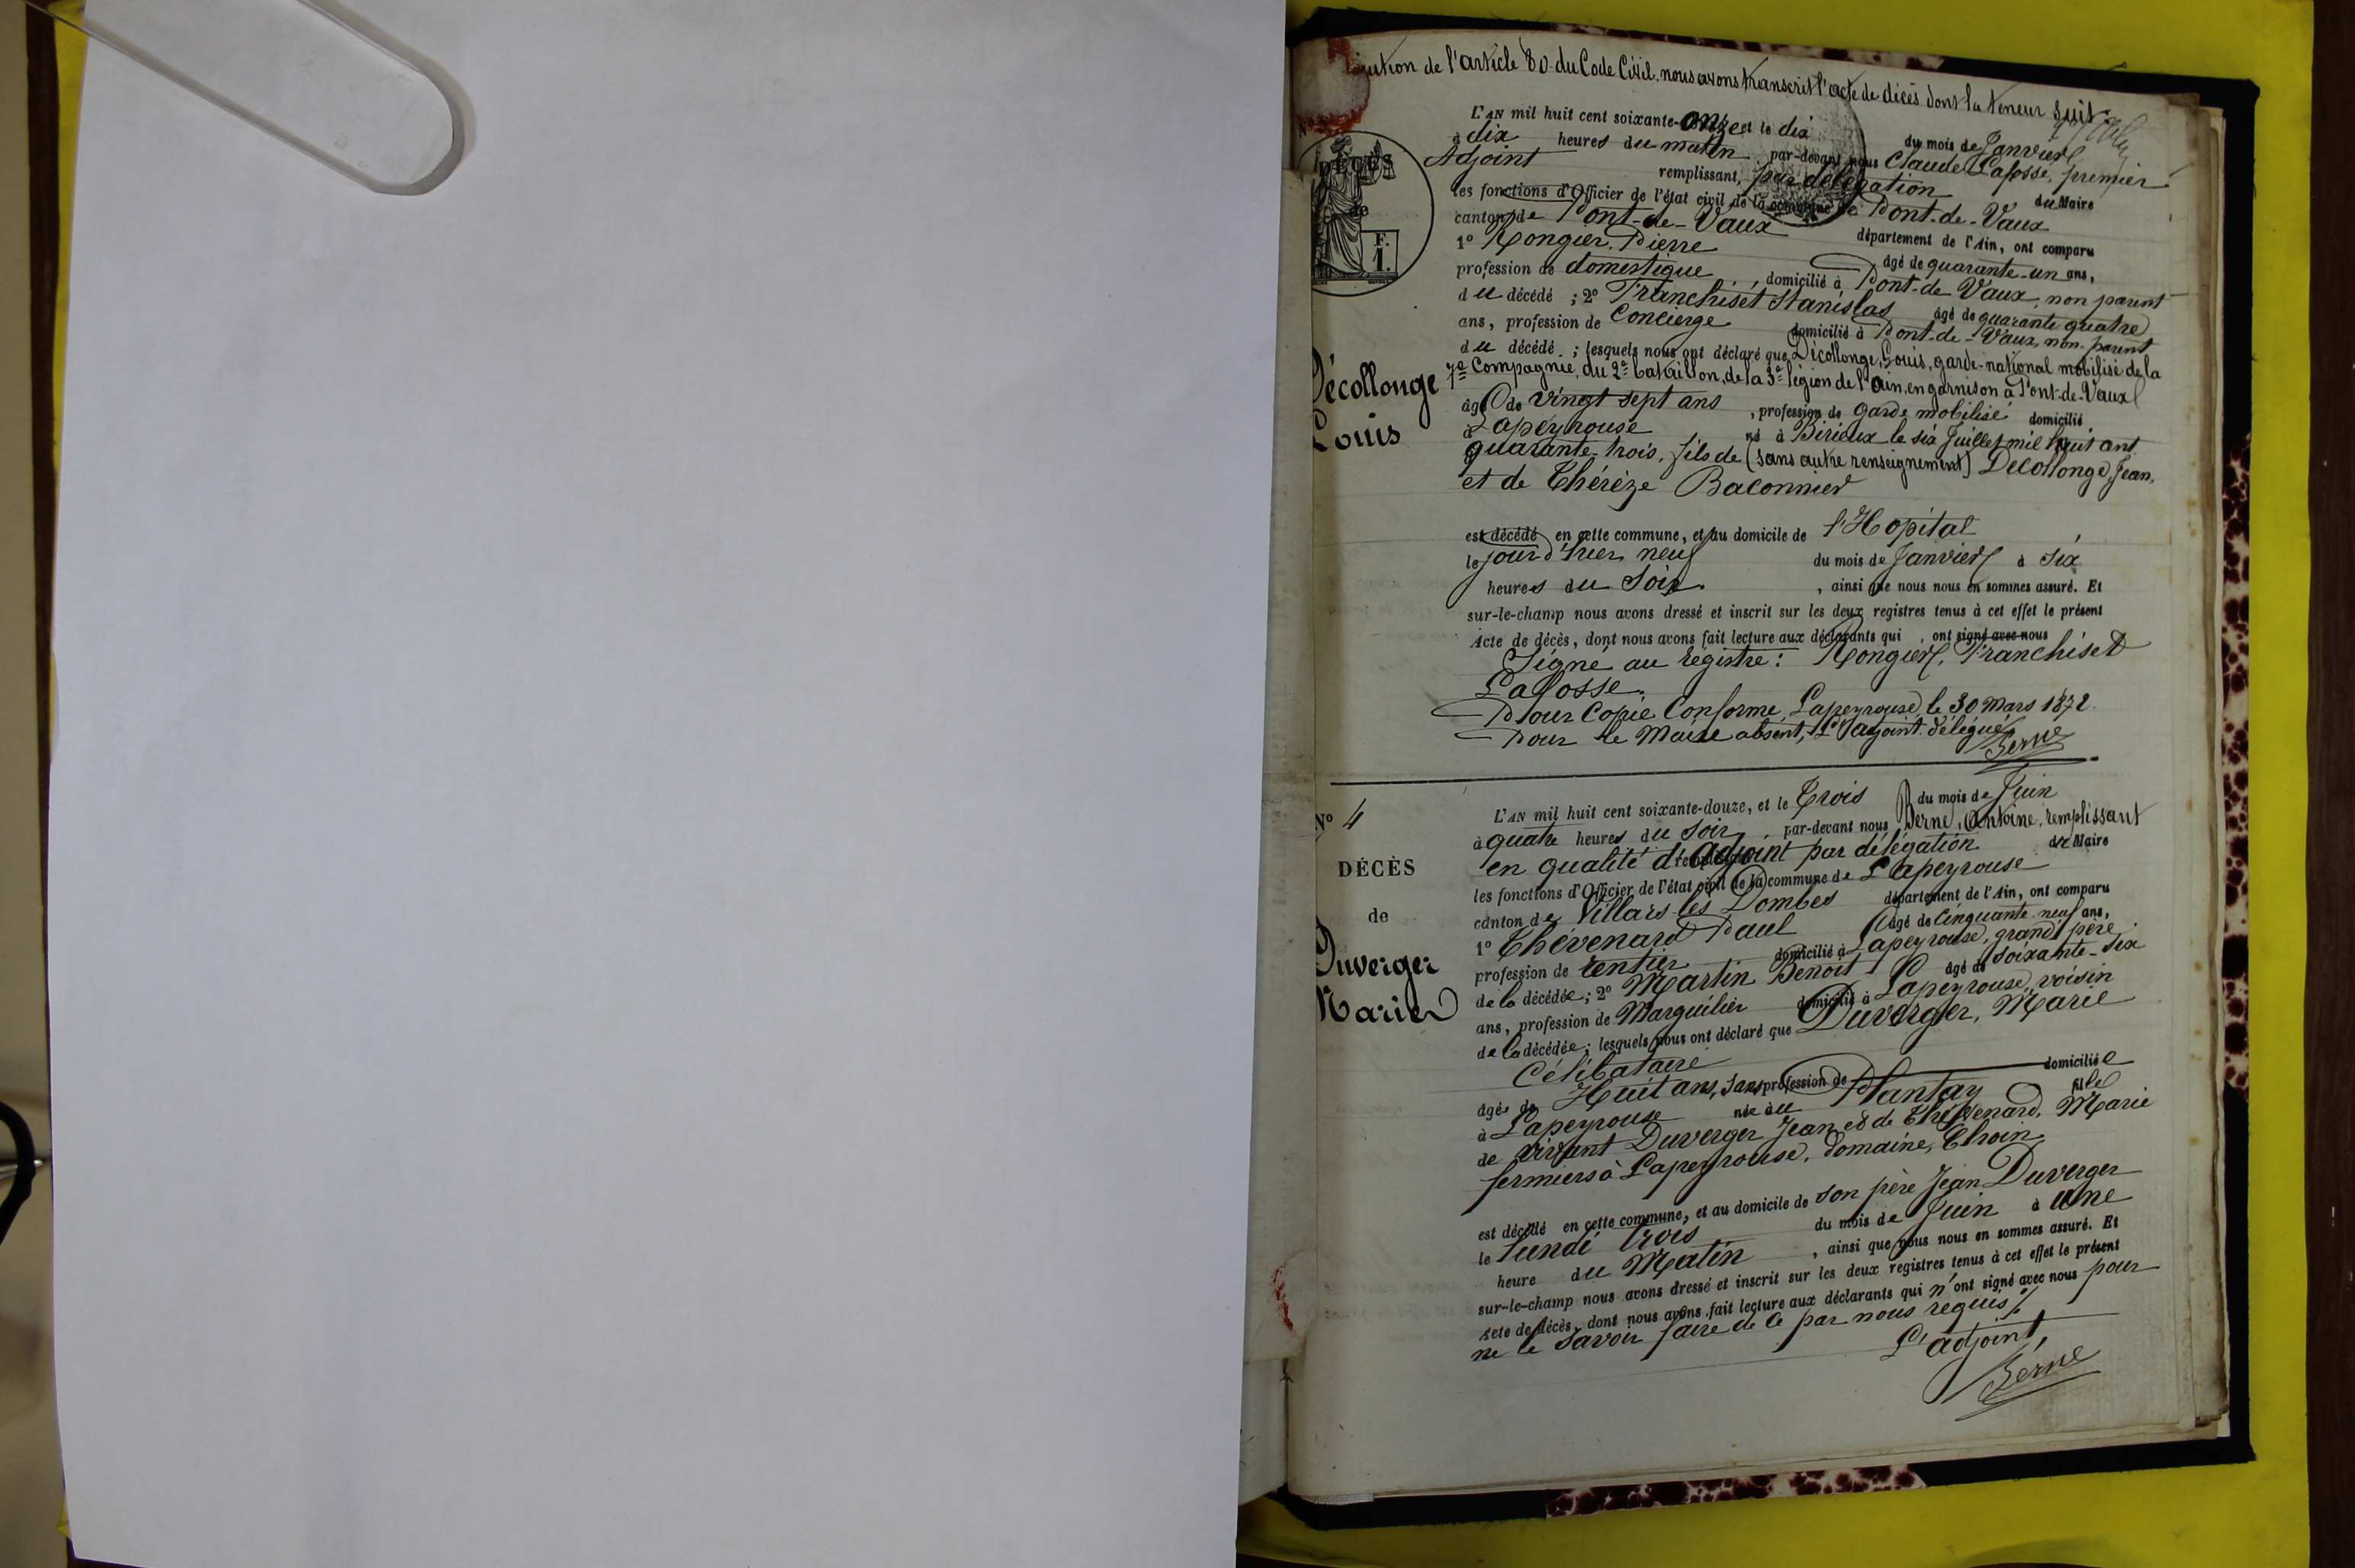 ution de l'article 80 du Code Civil, nous avons transcrit l'acte de décès dont la teneur suit
L'AN mil huit cent soixante-onze et le dix du mois de Janvier
à dix heures du matin par-devant nous Claude Lafosse, premier
Adjoint remplissant, par délégation du Maire
les fonctions d'Officier de l'état civil de la commune de Pont-de-Vaux
canton de Pont-de-Vaux département de l'Ain, ont comparu
1º Rongier, Pierre âgé de quarante-un ans,
profession de domestique, domicilié à Pont-de Vaux, non parent
du décédé ; 2º Franchiset Stanislas âgé de quarante quatre
ans, profession de Concierge domicilié à Pont-de-Vaux, non parent
du décédé ; lesquels nous ont déclaré que Décollonge, Louis, garde-national mobilisé de la
7e Compagnie, du 2e bataillon, de la 3e légion de l'Ain, en garnison à Pont-de-Vaux
âgé de vingt sept ans, profession de garde mobilisé domicilié
à Lapeyrouse né à Birieux le six Juillet mil huit cent
quarante-trois, fils de (sans autre renseignement) Décollonge, Jean,
et de Thérèze Baconnier
est décédé en cette commune, et au domicile de l'Hopital
le jour d'hier neuf du mois de Janvier à six
heures du soir, ainsi que nous nous en sommes assuré. Et
sur-le-champ nous avons dressé et inscrit sur les deux registres tenus à cet effet le présent
Acte de décès, dont nous avons fait lecture aux déclarants qui , ont signé avec nous
Signé au registre : Rongier, Franchiset
Lafosse.
Pour Copie Conforme, Lapeyrouse, le 30 Mars 1872.
Pour le Maire absent, L'adjoint délégué,
Berne
DÉCÈS
de
F.
1.
Décollonge
Louis
Nº 4
DÉCÈS
de
Duverger
Marie
L'AN mil huit cent soixante-douze, et le Trois du mois de Juin
à quatre heures du soir, par-devant nous Berne, Antoine, remplissant
en qualité d'adjoint par délégation du Maire
les fonctions d'Officier de l'état civil de la commune de Lapeyrouse
canton de Villars les Dombes département de l'Ain, ont comparu
1º Thévenard Paul âgé de Cinquante-neuf ans,
profession de rentier domicilié à Lapeyrouse, grand père
de la décédée ; 2º Martin Benoit âgé de soixante-six
ans, profession de Marguilier domicilié à Lapeyrouse, voisin
de la décédée ; lesquels nous ont déclaré que Duverger, Marie
Célibataire
âgée de Huit ans, sans profession de domiciliée
à Lapeyrouse née au Plantay fille
de vivant Duverger Jean et de Thévenard, Marie
fermiers à Lapeyrouse, domaine, Choin.
est décédé en cette commune, et au domicile de son père Jean Duverger
le lundi trois du mois de Juin à une
heure du Matin, ainsi que nous nous en sommes assuré. Et
sur-le-champ nous avons dressé et inscrit sur les deux registres tenus à cet effet le présent
acte de décès, dont nous avons fait lecture aux déclarants qui n'ont signé avec nous pour
ne le savoir faire de ce par nous requis ./.
L'adjoint,
Berne